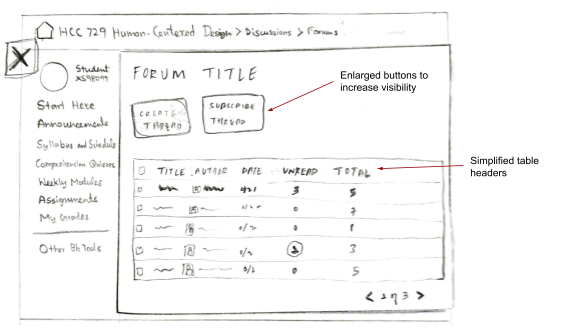 HCC 729 Human-Centered Design > Discussions > Forums
X
Student
XS98099
Start Here
Announcements
Syllabus and Schedule
Comprehension Quizzes
Weekly Modules
Assignments
My Grades
Other Bb Tools
FORUM TITLE
CREATE
THREAD
SUBSCRIBE
THREAD
Enlarged buttons to
increase visibility
Simplified table
headers
TITLE AUTHOR DATE UNREAD TOTAL
3 5
0 7
0 1
0/2 2 3
0/2 0 5
< 1 of 3 >